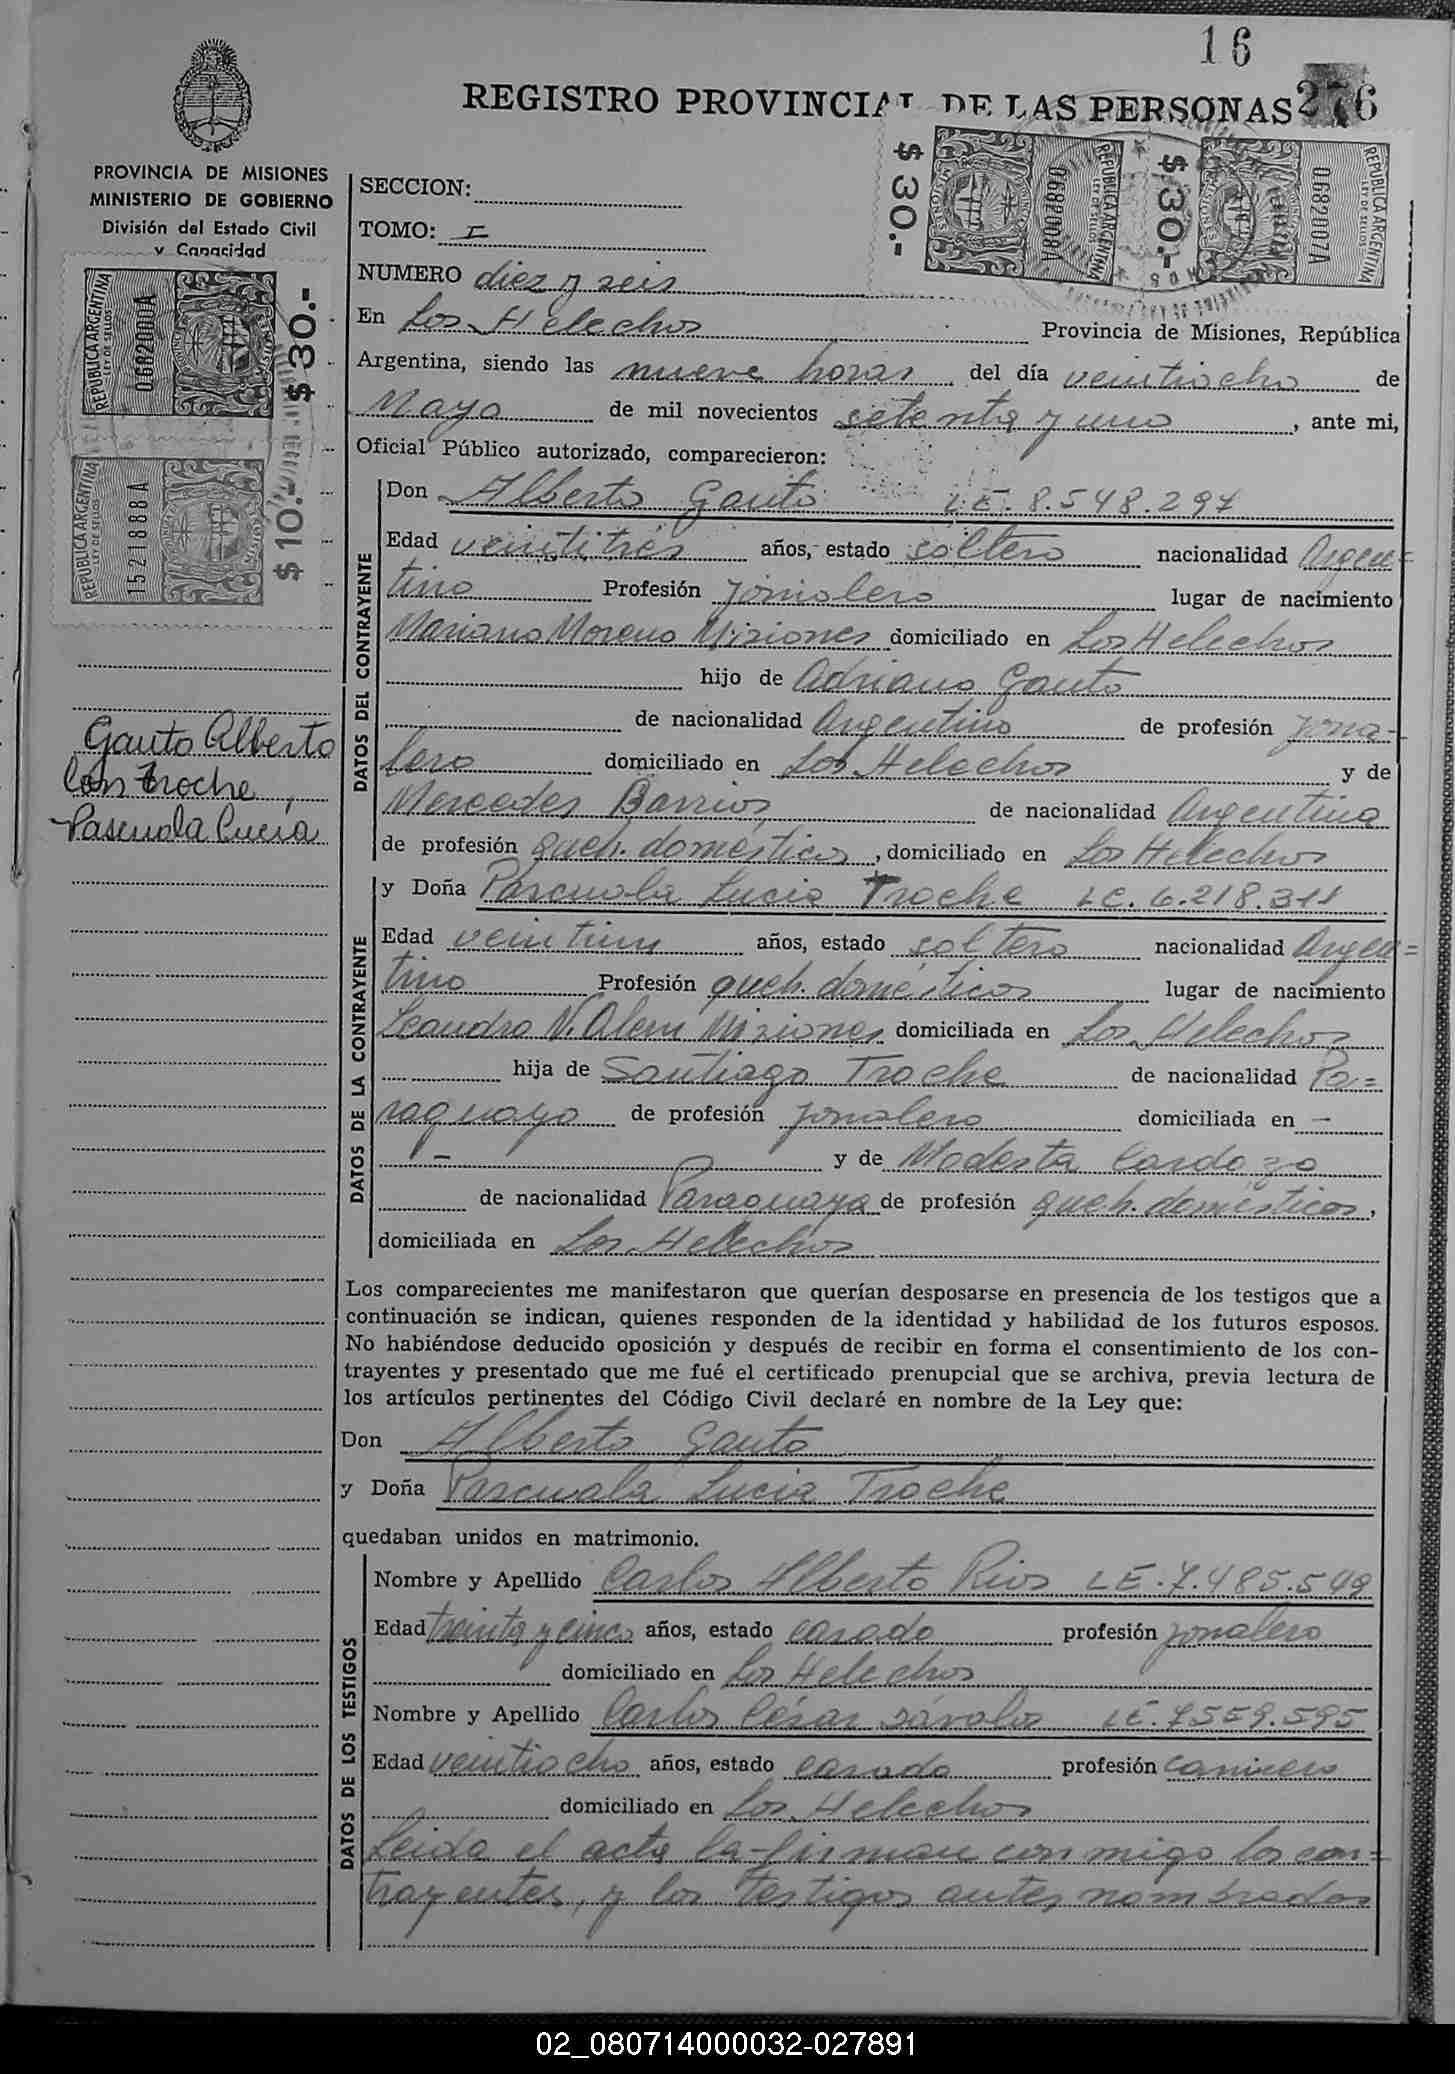 16
276
REGISTRO PROVINCIAL DE LAS PERSONAS
PROVINCIA DE MISIONES
MINISTERIO DE GOBIERNO
División del Estado Civil
y Capacidad
REPUBLICA ARGENTINA
LEY DE SELLOS
0682008A
$ 30.-
REPUBLICA ARGENTINA
LEY DE SELLOS
0682007A
$ 30.-
REPUBLICA ARGENTINA
LEY DE SELLOS
0682000A
$ 30.-
REPUBLICA ARGENTINA
LEY DE SELLOS
1521888A
$ 10.-
Gauto Alberto
Con Troche,
Pascuala Lucia
SECCION:
TOMO: I
NUMERO diez y seis
En Los Helechos Provincia de Misiones, República
Argentina, siendo las nueve horas del día veintiocho de
Mayo de mil novecientos setenta y uno, ante mi,
Oficial Público autorizado, comparecieron:
DATOS DEL CONTRAYENTE
Don Alberto Gauto L.E. 8.548.297
Edad veintitrés años, estado soltero nacionalidad Argen=
tino Profesión jornalero lugar de nacimiento
Mariano Moreno Misiones domiciliado en Los Helechos
hijo de Adriano Gauto
de nacionalidad Argentino de profesión jorna-
lero domiciliado en Los Helechos y de
Mercedes Barrios de nacionalidad Argentina
de profesión queh. domésticos, domiciliado en Los Helechos
DATOS DE LA CONTRAYENTE
y Doña Pascuala Lucia Troche L.C. 6.218.311
Edad veintiun años, estado soltera nacionalidad Argen=
tino Profesión queh. domésticos lugar de nacimiento
Leandro N. Alem Misiones domiciliada en Los Helechos
hija de Santiago Troche de nacionalidad Pa=
raguayo de profesión jornalero domiciliada en -
- y de Modesta Cardozo
de nacionalidad Paraguaya de profesión queh. domésticos,
domiciliada en Los Helechos
Los comparecientes me manifestaron que querían desposarse en presencia de los testigos que a
continuación se indican, quienes responden de la identidad y habilidad de los futuros esposos.
No habiéndose deducido oposición y después de recibir en forma el consentimiento de los con-
trayentes y presentado que me fué el certificado prenupcial que se archiva, previa lectura de
los artículos pertinentes del Código Civil declaré en nombre de la Ley que:
Don Alberto Gauto
y Doña Pascuala Lucia Troche
quedaban unidos en matrimonio.
DATOS DE LOS TESTIGOS
Nombre y Apellido Carlos Alberto Rios L.E. 7.485.549
Edad treinta y cinco años, estado casado profesión jornalero
domiciliado en Los Helechos
Nombre y Apellido Carlos César Zárate L.E. 7559.595
Edad veintiocho años, estado casado profesión
domiciliado en Los Helechos
Leida el acta la firman conmigo los con=
trayentes, y los testigos antes nombrados
02_080714000032-027891